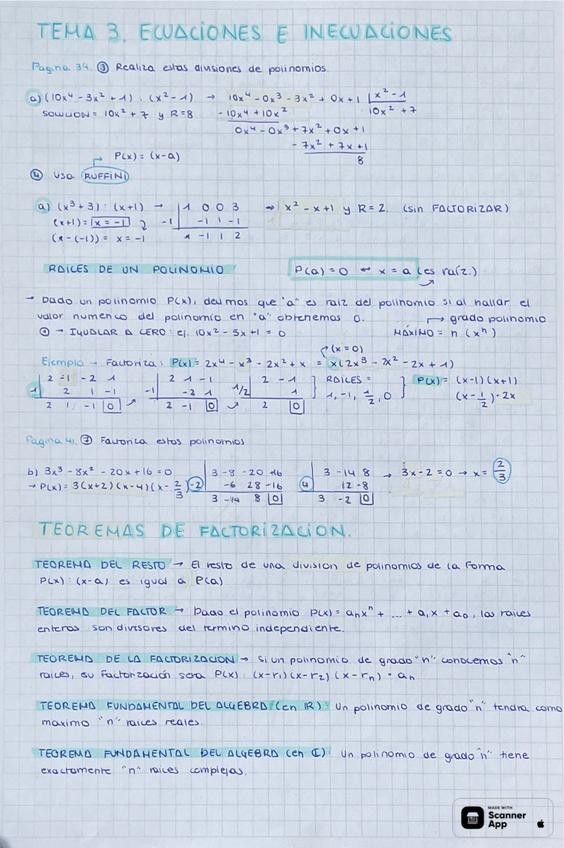 TEMA 3. ECUACIONES E INECUACIONES
Pagina 34. ③ Realiza estas divisiones de polinomios.
a) (10x⁴ - 3x² + 1) : (x² - 1) → 10x⁴ - 0x³ - 3x² + 0x + 1 | x² - 1
SOLUCION = 10x² + 7 y R = 8 - 10x⁴ + 10x² 10x² + 7
0x⁴ - 0x³ + 7x² + 0x + 1
- 7x² + 7x + 1
8
P(x) = (x-a)
④ Usa RUFFINI
a) (x³ + 3) : (x + 1) → | 1 0 0 3 → x² - x + 1 y R = 2. (sin FACTORIZAR)
(x+1) = x = -1 -1 | -1 1 -1
(x - (-1)) = x = -1 1 -1 1 2
RAICES DE UN POLINOMIO P(a) = 0 ↔ x = a (es raíz.)
→ Dado un polinomio P(x), decimos que "a" es raiz del polinomio si al hallar el
valor numerico del polinomio en "a" obtenemos 0. → grado polinomio
① → IGUALAR A CERO: ej. 10x² - 5x + 1 = 0 MÁXIMO = n (xⁿ)
(x = 0)
Ejemplo → Factoriza: P(x) = 2x⁴ - x³ - 2x² + x = x(2x³ - 2x² - 2x + 1)
| 2 -1 -2 1 | 2 1 -1 | 2 -1 | RAICES = } P(x) = (x-1)(x+1)
1 | 2 1 -1 -1 | -2 1 1/2 | 1 1, -1, 1/2, 0 (x - 1/2) · 2x
2 1 -1 0 2 -1 0 2 0
Pagina 41. ⑦ Factoriza estos polinomios
b) 3x³ - 8x² - 20x + 16 = 0 | 3 -8 -20 16 | 3 -14 8 → 3x - 2 = 0 → x = 2/3
→ P(x) = 3(x+2)(x-4)(x - 2/3) -2 | -6 28 -16 4 | 12 -8
3 -14 8 0 3 -2 0
TEOREMAS DE FACTORIZACION.
TEOREMA DEL RESTO → El resto de una division de polinomios de la forma
P(x) : (x-a) es igual a P(a)
TEOREMA DEL FACTOR → Dado el polinomio P(x) = aₙxⁿ + ... + a₁x + a₀, las raices
enteros son divisores del termino independiente.
TEOREMA DE LA FACTORIZACION → Si un polinomio de grado "n" conocemos "n"
raices, su factorización sera P(x) : (x-r₁)(x-r₂)(x-rₙ) · aₙ
TEOREMA FUNDAMENTAL DEL ALGEBRA (en ℝ) Un polinomio de grado "n" tendra como
maximo "n" raices reales.
TEOREMA FUNDAMENTAL DEL ALGEBRA (en ℂ) Un polinomio de grado "n" tiene
exactamente "n" raices complejas.
MADE WITH
Scanner
App